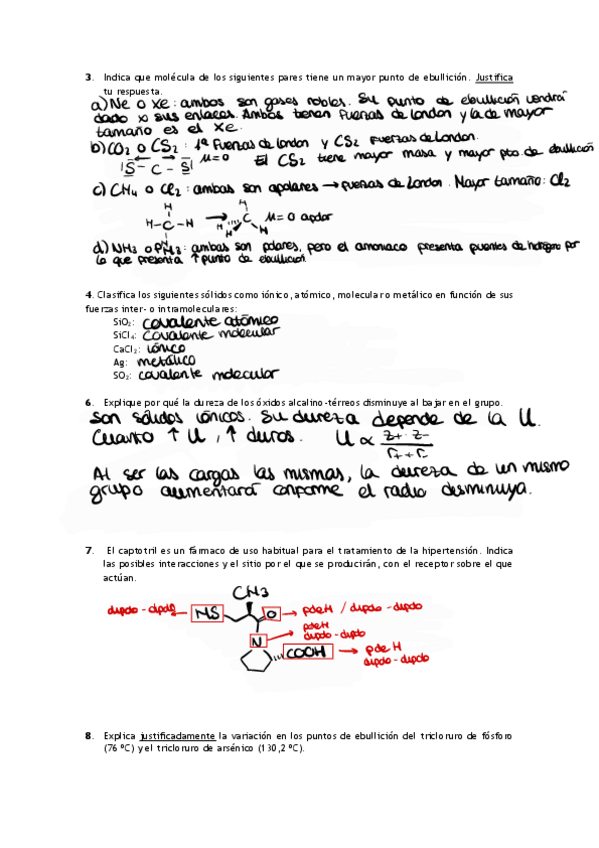 3. Indica que molécula de los siguientes pares tiene un mayor punto de ebullición. Justifica
tu respuesta.
a) Ne o Xe: ambos son gases nobles. Su punto de ebullición vendrá
dado x sus enlaces. Ambos tienen fuerzas de London y la de mayor
tamaño es el Xe.
b) CO2 o CS2 : 1º Fuerzas de london y CS2 fuerzas de London.
|S - C - S| μ=0 El CS2 tiene mayor masa y mayor pto de ebullición
c) CH4 o Cl2 : ambas son apolares → fuerzas de London. Mayor tamaño: Cl2
H H
H-C-H → C μ=0 apolar
H H H H
d) NH3 o PH3 : ambas son polares, pero el amoniaco presenta puentes de hidrógeno por
lo que presenta ↑ punto de ebullición.
4. Clasifica los siguientes sólidos como iónico, atómico, molecular o metálico en función de sus
fuerzas inter- o intramoleculares:
SiO2: covalente atómico
SiCl4: covalente molecular
CaCl2: iónico
Ag: metálico
SO2: covalente molecular
6. Explique por qué la dureza de los óxidos alcalino-térreos disminuye al bajar en el grupo.
Son sólidos iónicos. Su dureza depende de la U.
Cuanto ↑ U, ↑ duros. U ∝ z+ z- / r+ + r-
Al ser las cargas las mismas, la dureza de un mismo
grupo aumentará conforme el radio disminuya.
7. El captotril es un fármaco de uso habitual para el tratamiento de la hipertensión. Indica
las posibles interacciones y el sitio por el que se producirán, con el receptor sobre el que
actúan.
CH3
dipolo - dipolo ← HS O → pdeH / dipolo - dipolo
pdeH
N dipolo - dipolo
COOH → pdeH
dipolo - dipolo
8. Explica justificadamente la variación en los puntos de ebullición del tricloruro de fósforo
(76 ºC) y el tricloruro de arsénico (130,2 ºC).